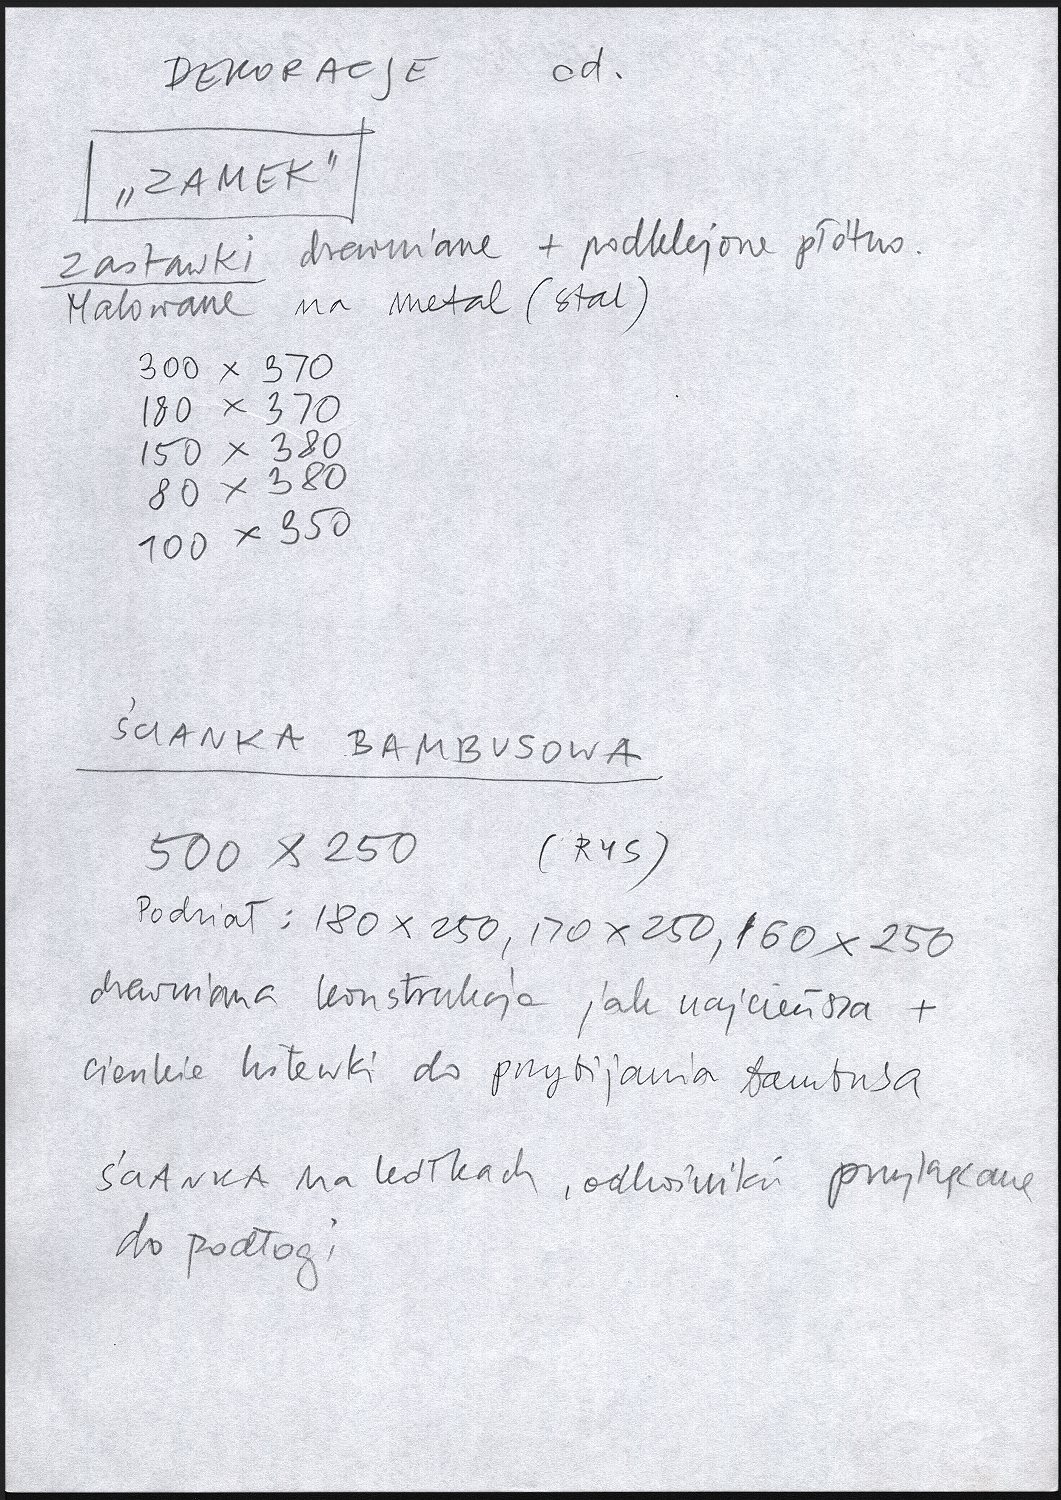 DEKORACJE cd.
„ZAMEK"
Zastawki drewniane + podklejone płótno.
Malowane na metal (stal)
300 x 370
180 x 370
150 x 380
80 x 380
100 x 350
ŚCIANKA BAMBUSOWA
500 x 250 (RYS)
Podział: 180 x 250, 170 x 250, 160 x 250
drewniana konstrukcja jak najcieńsza +
cienkie listewki do przybijania bambusa
ŚCIANKA na kółkach, przykręcane
do podłogi